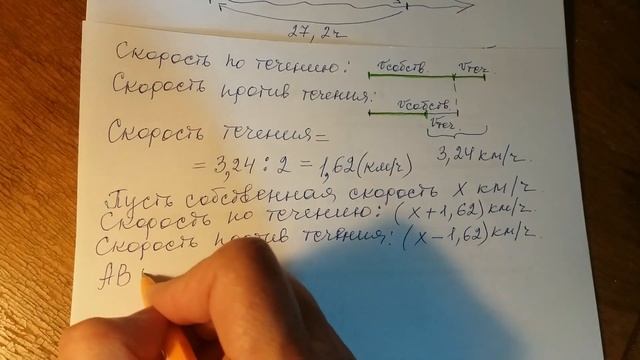 27,2ч
Скорость по течению: vсобств. vтеч.
Скорость против течения: vсобств.
vтеч.
Скорость течения =
= 3,24 : 2 = 1,62 (км/ч) 3,24 км/ч.
Пусть собственная скорость x км/ч.
Скорость по течению: (x+1,62) км/ч.
Скорость против течения: (x-1,62) км/ч.
AB